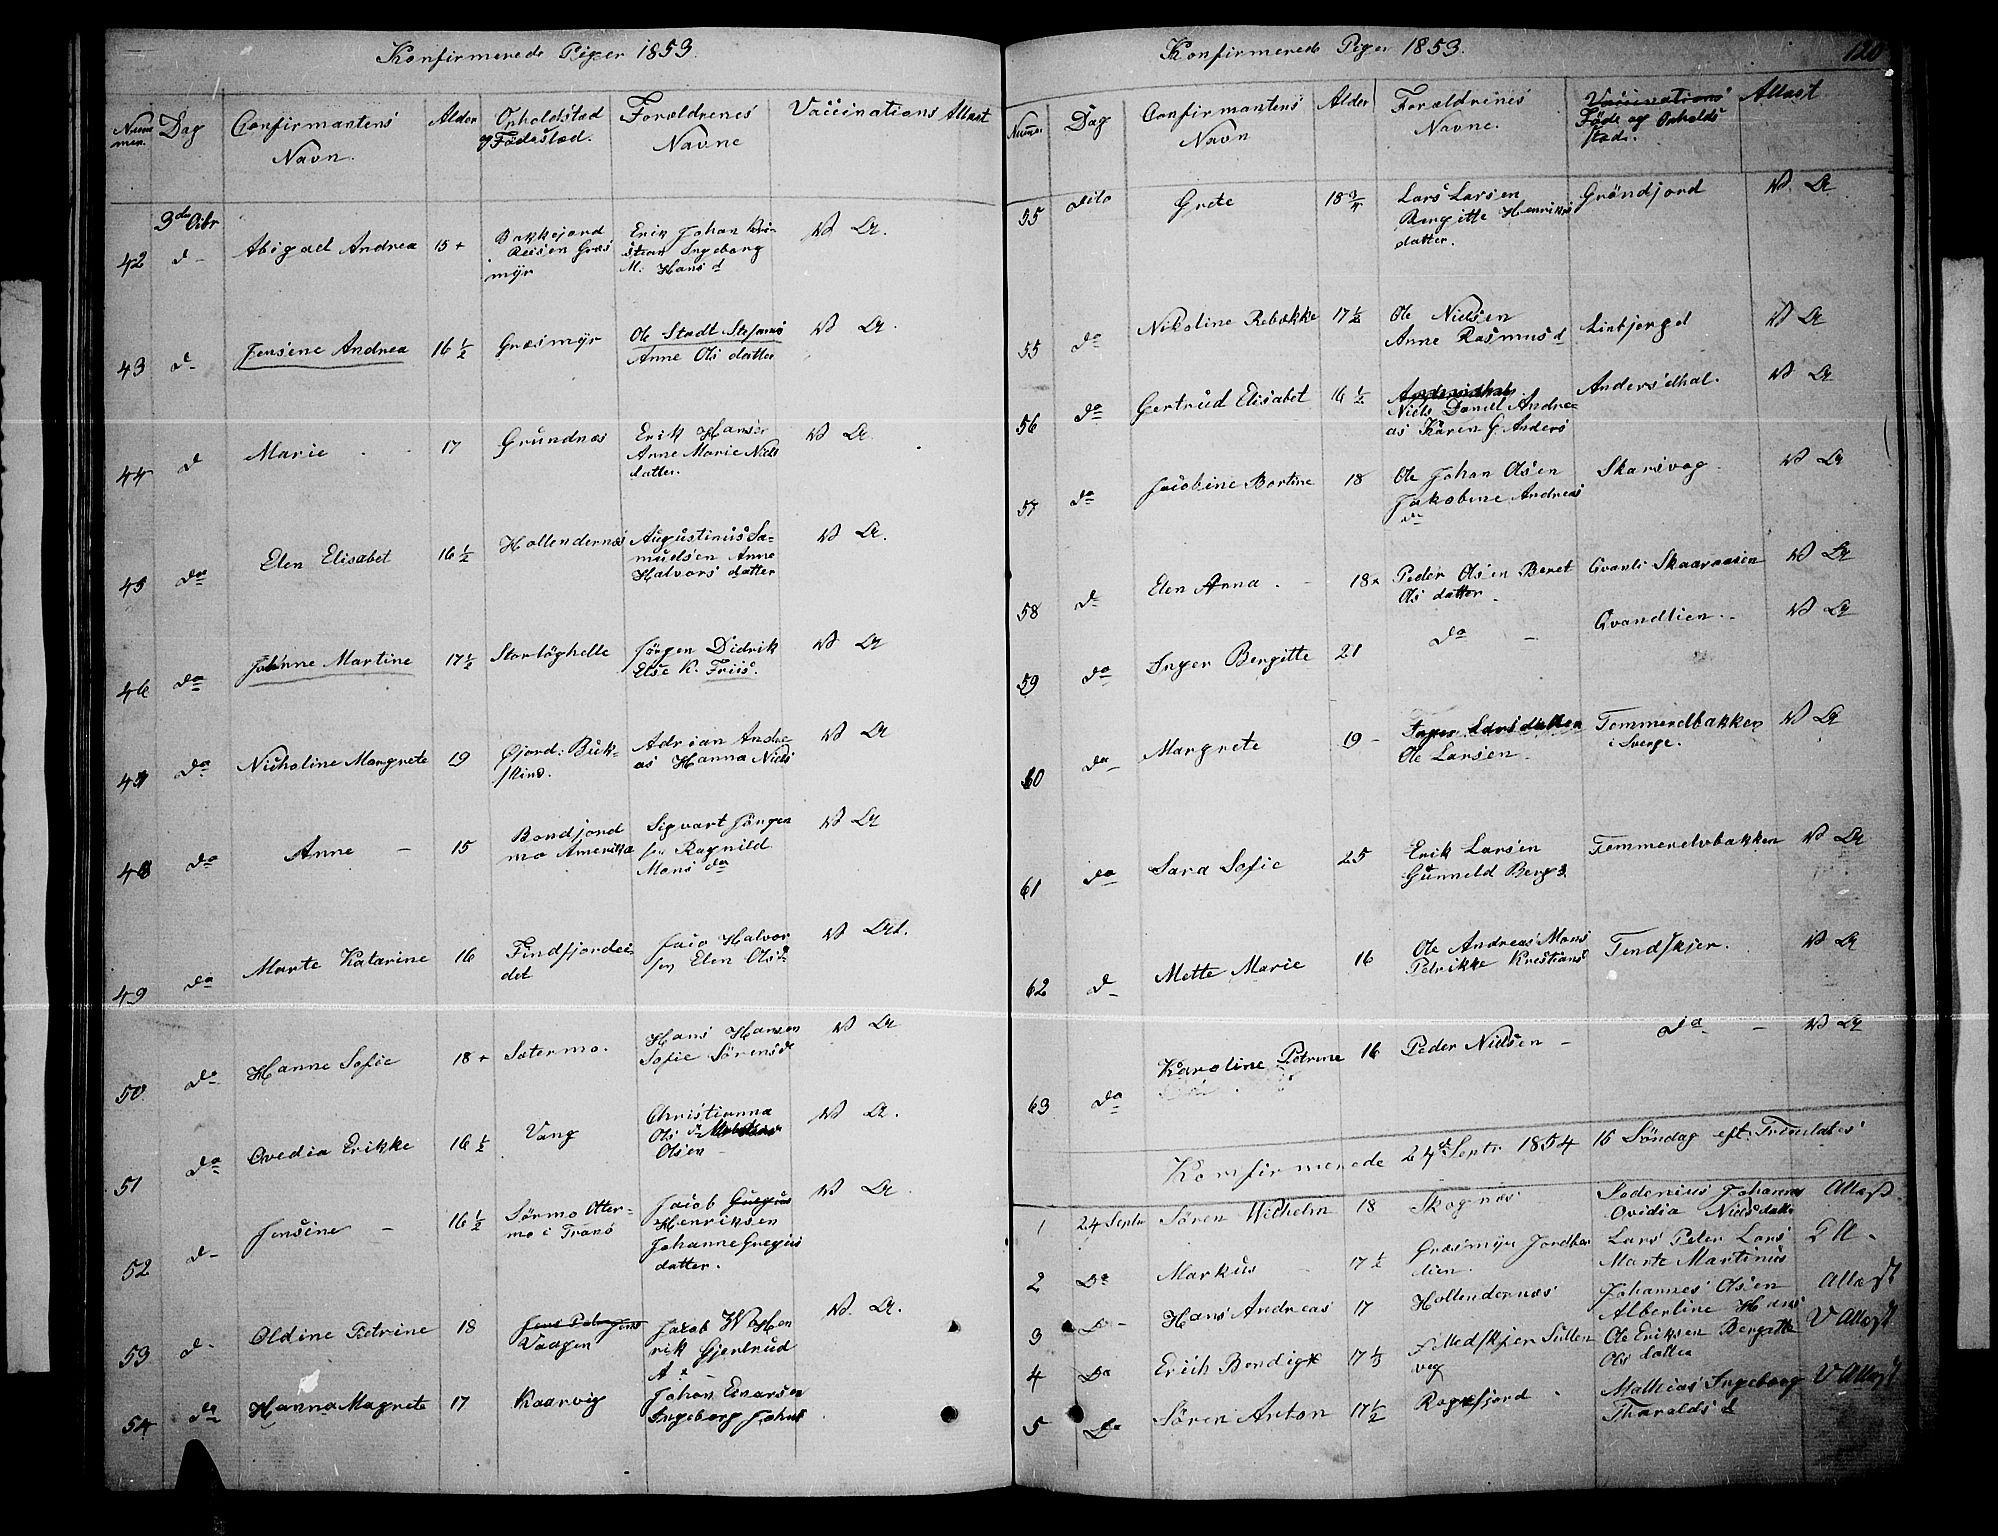 Konfirmerede Piger 1853.
Nummer. Dag Confirmantens Navn. Alder Opholdsted og Fødested. Forældrenes Navne Vaccinations Attest
3de Otbr
42 d- Abigael Andrea 15+ Bakkejord Reisen Græsmyr Erik Johan Kristian Ingeborg M: Hans d V A.
43 d- Jensine Andrea 16 1/2 Græsmyr Ole Stadt Stefans Anne Ols datter V A.
44 d Marie 17 Grundnæs Erik Hanser Anne Marie Niels datter. V A.
45 do Elen Elisabet 16 1/2 Hollendernæs Augustinus Samuelsen Anne Halvors datter V A.
46 do Johnne Martine 17 1/2 Storløghelle Jörgen Didrik Else K. Friis. V A
47 do Nicholine Margrete 19 Gjord: Bukskind. Adrian Andreas Hanna Niels V A
48 do Anne - 15 Bondjord mo Amerikka Sigvart Jörgensen Ragnild Mons da V A
49 do Marte Katarine 16 Findfjordeidet Jaco Halvorsen Elen Olsd V At.
50 do Hanne Sofie 18+ Sætermo. Hans Hansen Sofie Sörensd V A
51 do Ovedia Erikke 16 1/2 Vang Christianna Ols d Olsen V A.
52 d- Jensine - 16 1/2 Sörmo Ottermo i Tranö Jacob Henriksen Johanne Gregers datter. V A.
53 d- Oldine Petrine 18 Vaagen Jacob W Henrik Gjertrud A V. A.
54 do Hanna Magrete 17 Kaarvig Johan Einarsen Ingeborg Johns
Konfirmerede Piger 1853. 120
Numer Dag Confirmantens Navn Alder Forældrenes Navne. Vaccinations Föde og Opholds sted. Attest
55 dito Grete 18 3/4 Lars Larsen Bergitte Henriks datter. Gröndjord V A
55 do Nikoline Rebække 17 1/2 Ole Nielsen Anne Rasmus d Linbjergd V A
56 do Gertrud Elisabet 16 1/2 Andersdhal Niels Daniel Andreas Karen G Anders Andersdhal. V A
57 do Jacobine Bortine 18 Ole Johan Olsen Jakobine Andreas da Skarsvog. V A
58 d- Elen Anna. - 18+ Peder Olsen Beret Ols datter Qvanli Skaaraasen V A
59 do Inger Bergitte 21 do - Qvandlien. - V A
60 do Margrete 19 - Inger Larsdatter Ole Larsen. Tommerelbakken i Sverge. V A
61 do Sara Sofie 25 Erik Larsen Gunneld Bergs. Tommerelvbakken V A
62 d- Mette Marie 16 Ole Andreas Mons Petrikke Kristians Tendskjer. V A
63 do Karoline Petrine 16 Peder Nielsen - do - V A
Komfirmerede 24de Septr 1854 15 Söndag eft: Trinitatis
1 24 Septr Sören Wilhelm 18 Skognæs Sodenius Johannes Ovidia Nielsdatter Attest.
2 Do Markus - 17 1/2 Græsmyr Jordbærlien. Lars Peter Lars Marte Martinus
3 Do- Hans Andreas 17 Hollendernæs Johannes Olsen Albertine Hans Attest
4 Do Erich Bendigt 17 1/3 Medskjer Sullenveg Ole Eriksen Bergitte Ols datter V Attest
5 Do Sören Anton 17 1/2 Rognfjord - Mathias Ingeborg Tharalds d V Attest